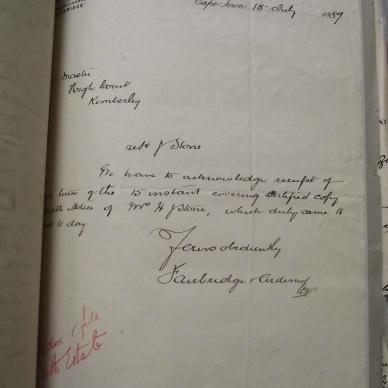 Cape Town 18 July 1889
Master
High Court
Kimberley
re H J Stone
We have to acknowledge receipt of
letter of the 15 instant covering certified copy
Notice of Mrs H J Stone, which duly came to
to day
Yours obediently
Fairbridge & Arderne
file
Estate